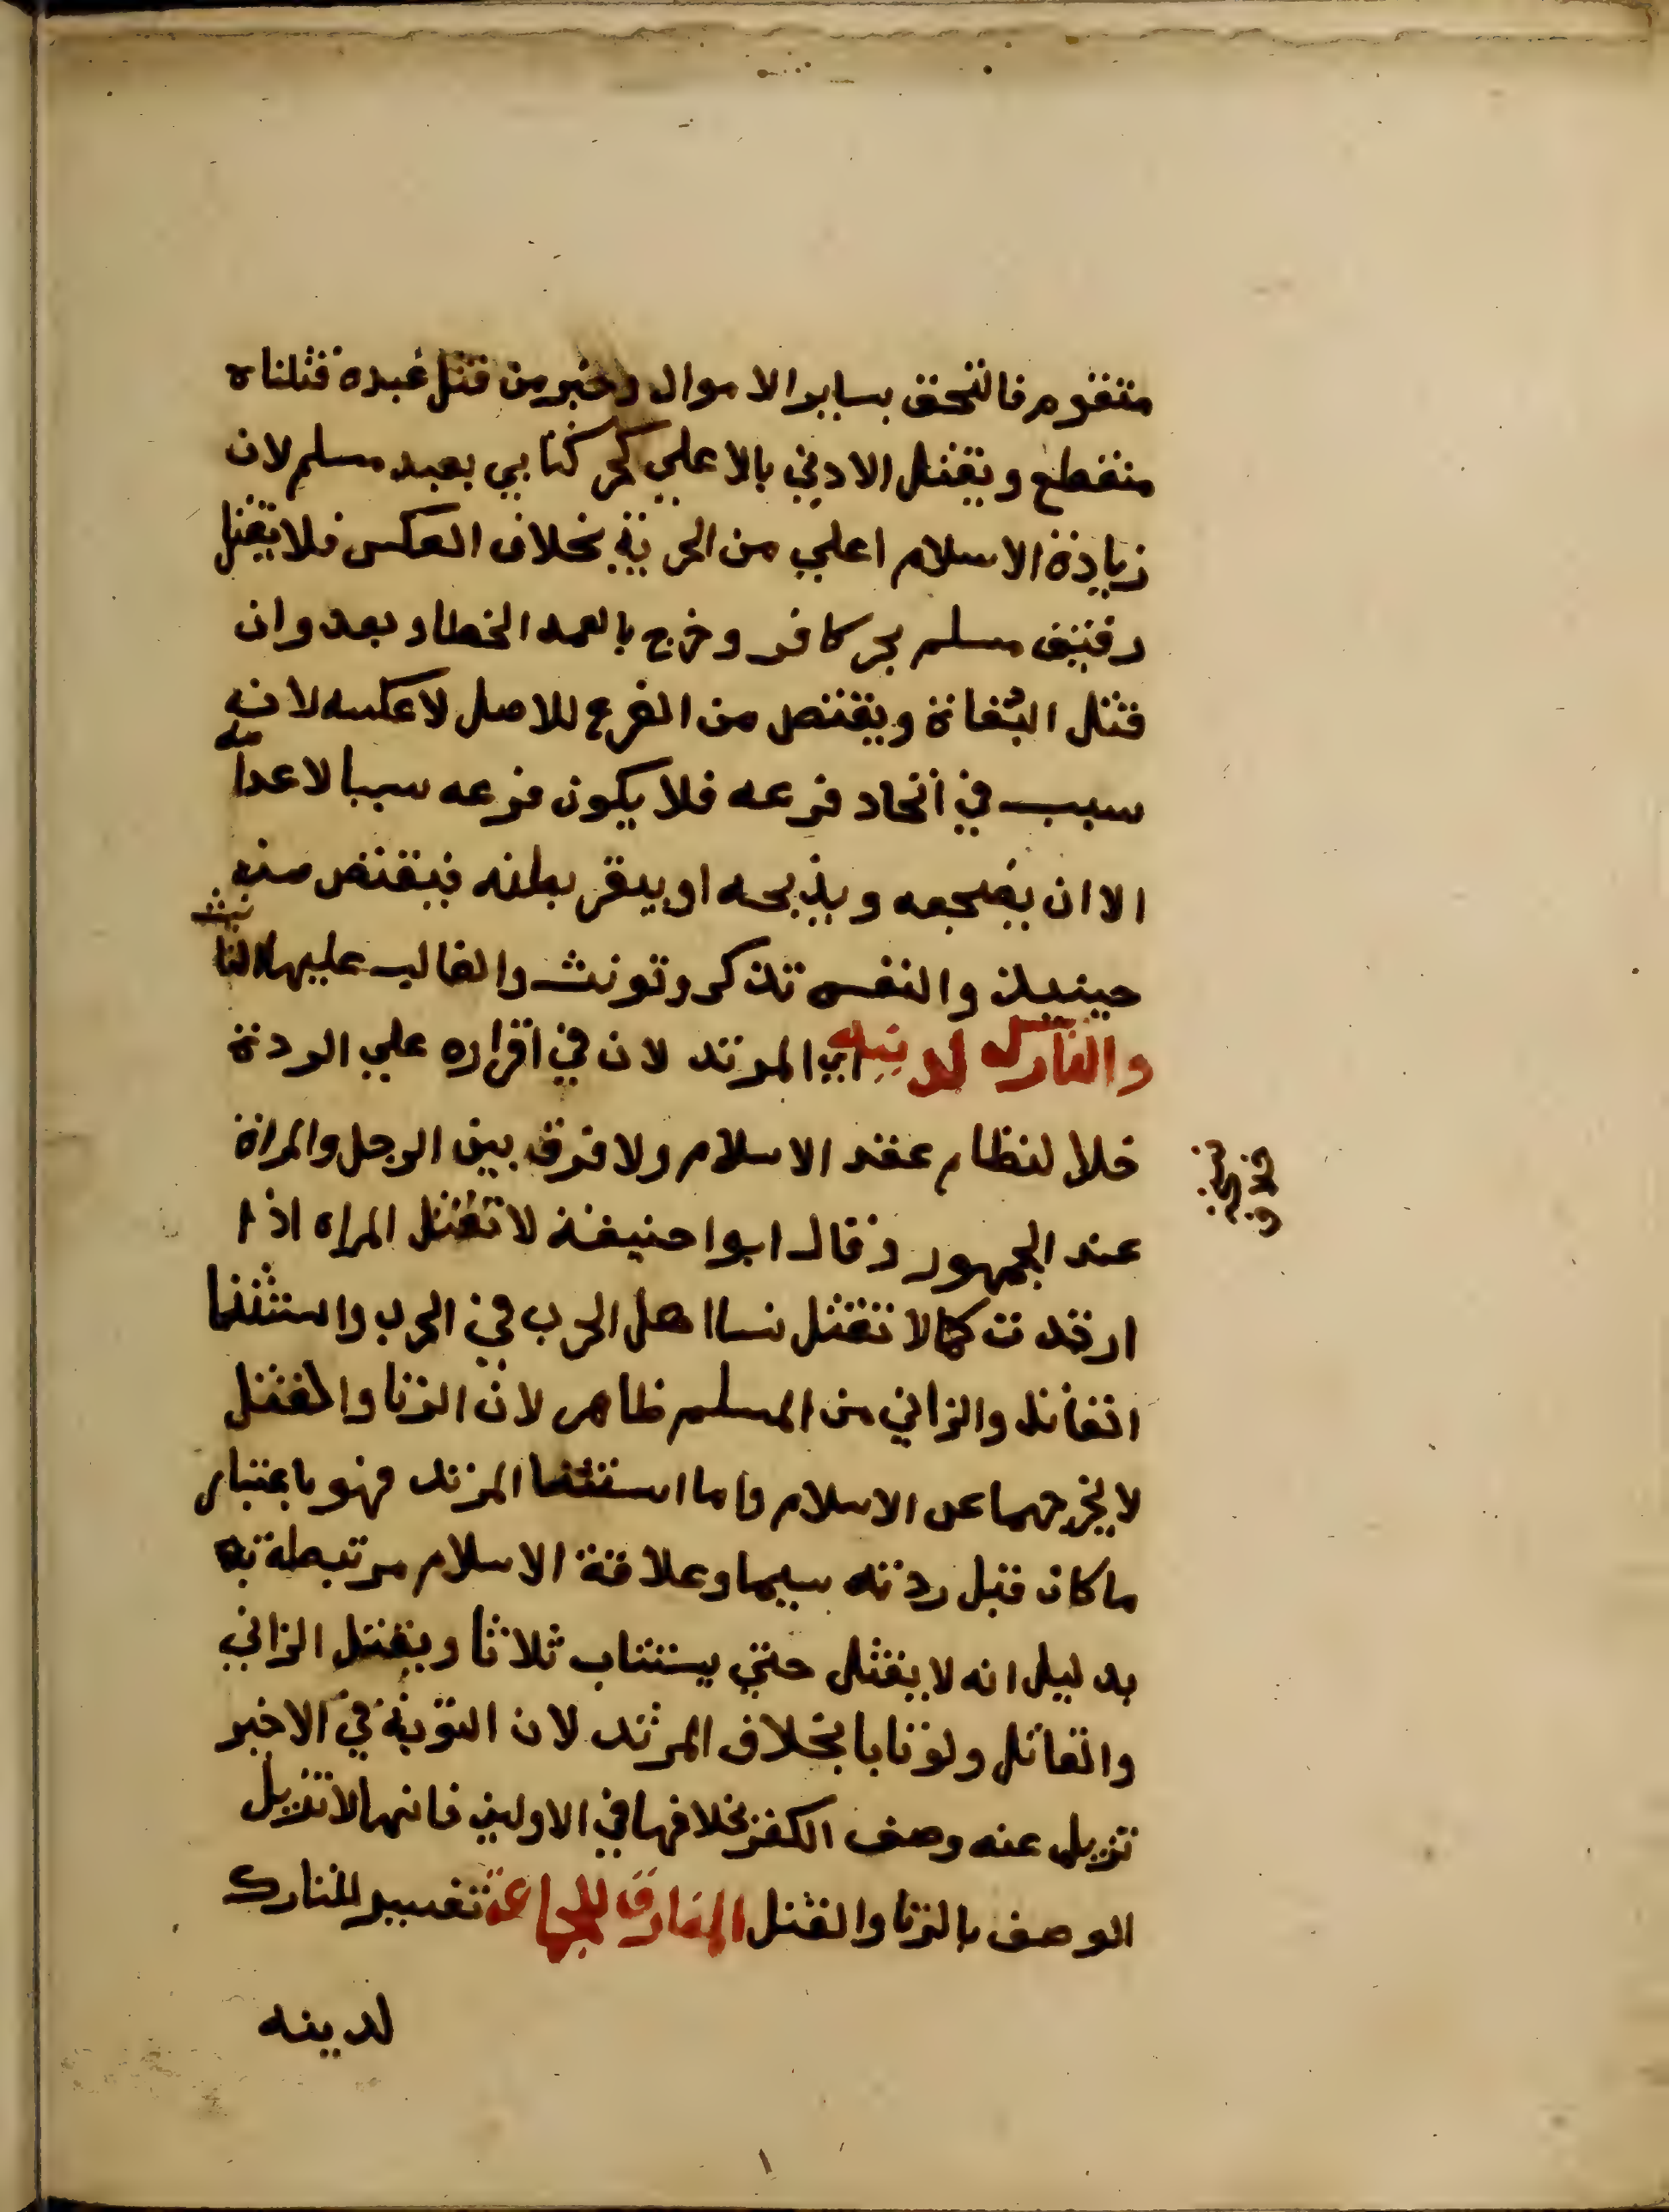 متقوم فالتحق بساير الاموال وخبر من قتل عبده قتلناه
منقطع ويقتل الادني بالاعلي كحر كتابي بعبد مسلم لان
زيادة الاسلام اعلي من الحرية بخلاف العكس فلا يقتل
رقيق مسلم بحر كافر وخرج بالعمد الخطا وبعدوان
قتل البغاة ويقتص من الفرع للاصل لا عكسه لانه
سبب في اتحاد فرعه فلا يكون فرعه سببا لاعدامه
الا ان يضجعه ويذبحه او يبقر بطنه فيقتص منه
حينيذ والنفس تذكر وتونث والغالب عليها التانيث
والتارك لدينه اي المرتد لان في اقراره علي الردة
خللا لنظام عقد الاسلام ولا فرق بين الرجل والمراة
عند الجمهور وقال ابوا حنيفة لا تقتل المراه اذا
ارتدت كما لا تقتل نسا اهل الحرب في الحرب واستثنا
القاتل والزاني من المسلم ظاهر لان الزنا والقتل
لا يخرجهما عن الاسلام واما استثنا المرتد فهو باعتبار
ما كان قبل ردته سيما وعلاقة الاسلام مرتبطة به
بدليل انه لا يقتل حتي يستتاب ثلاثا ويقتل الزاني
والقاتل ولو تابا بخلاف المرتد لان التوبة في الاخير
تزيل عنه وصف الكفر بخلافها في الاولين فانها لا تزيل
الوصف بالزنا والقتل المفارق للجماعة تفسير للتارك
لدينه